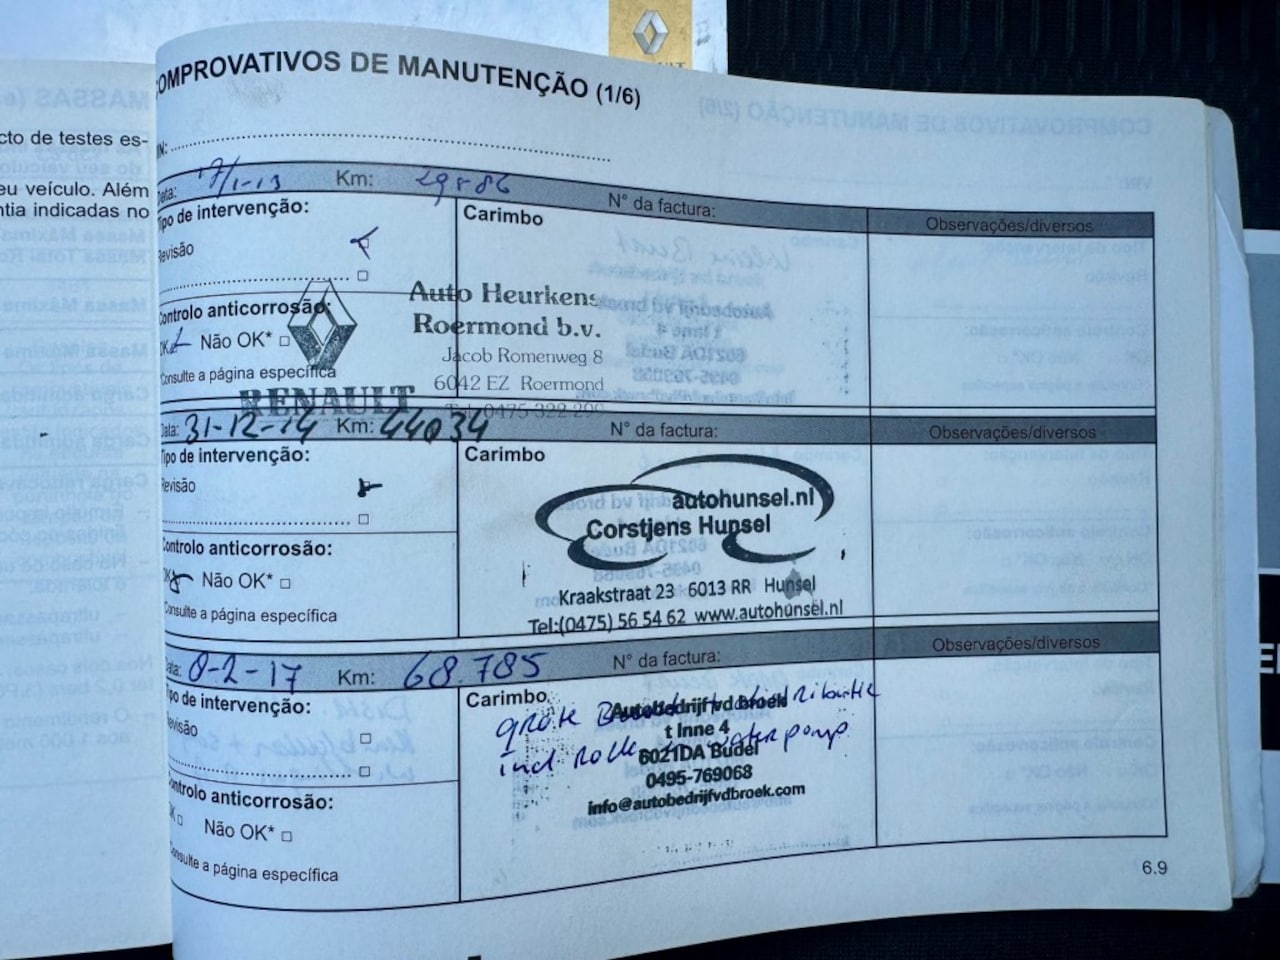 cto de testes es-
eu veículo. Além
ntia indicadas no
OMPROVATIVOS DE MANUTENÇÃO (1/6)
IN:
Data: 17/1-13 Km: 29886 N° da factura: Observações/diversos
Tipo de intervenção:
Revisão
Carimbo
Controlo anticorrosão:
OK Não OK*
Consulte a página específica
RENAULT
Auto Heurkens
Roermond b.v.
Jacob Romenweg 8
6042 EZ Roermond
Tel. 0475 322 299
Data: 31-12-14 Km: 44034 N° da factura: Observações/diversos
Tipo de intervenção:
Revisão
Carimbo
Controlo anticorrosão:
OK Não OK*
Consulte a página específica
autohunsel.nl
Corstjens Hunsel
Kraakstraat 23 6013 RR Hunsel
Tel:(0475) 56 54 62 www.autohunsel.nl
Data: 8-2-17 Km: 68.785 N° da factura: Observações/diversos
ipo de intervenção:
evisão
Carimbo
grote Beurt + distributie
incl Rollen waterpomp
Autobedrijf vd broek
t Inne 4
6021DA Budel
0495-769068
info@autobedrijfvdbroek.com
ontrolo anticorrosão:
K Não OK*
onsulte a página específica
6.9